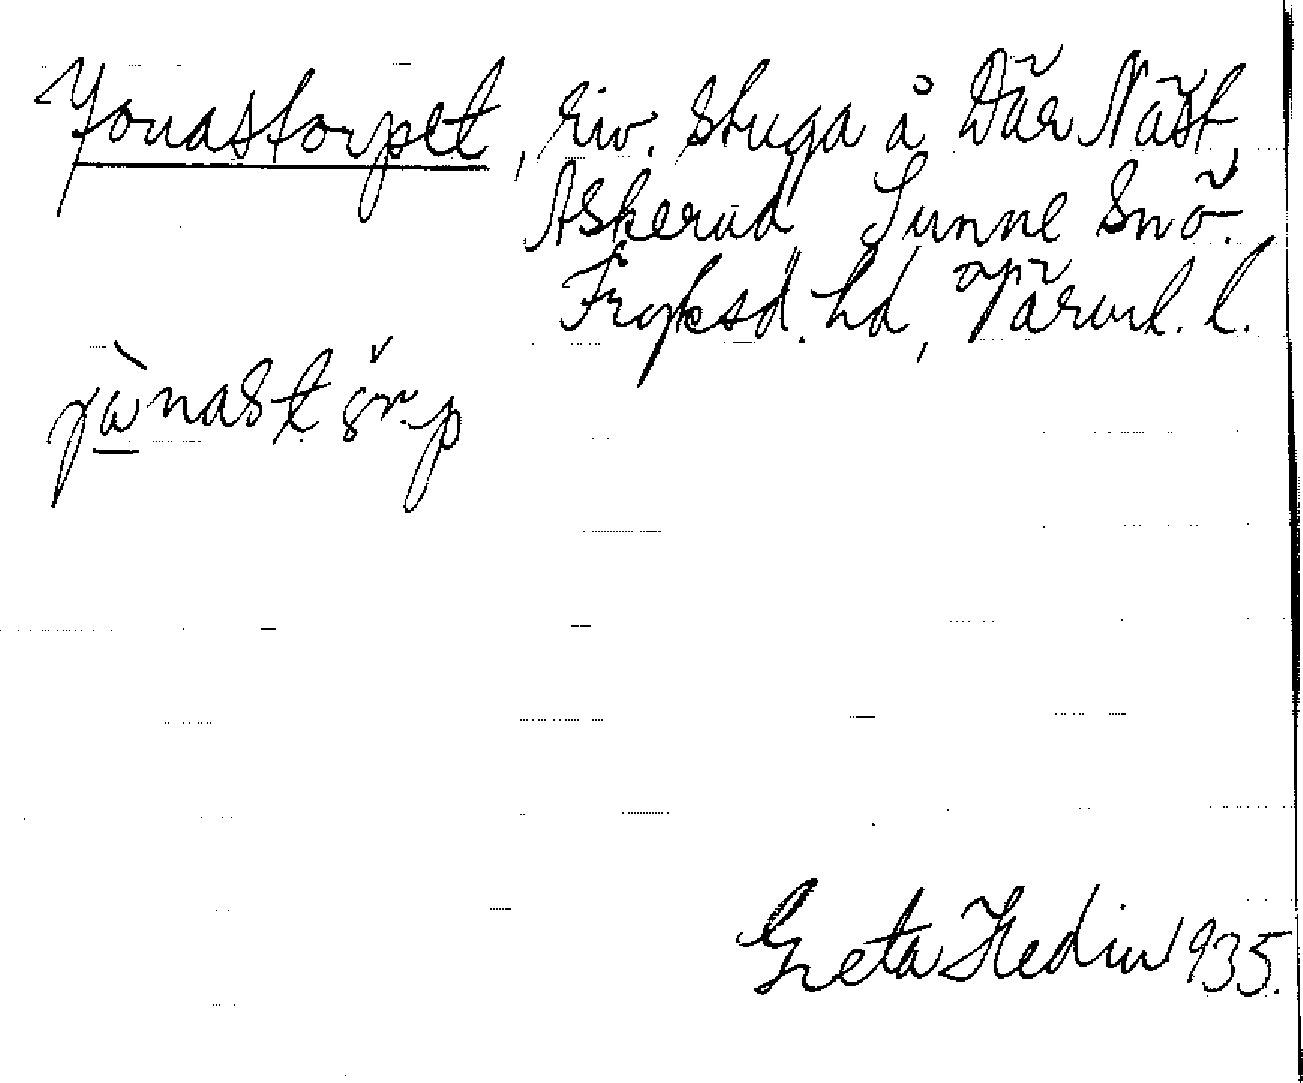 Jonastorpet, riv. stuga å Där Näst,
Askerud Sunne Snö.
Fryksd. hd, Värml. l.
Greta Hedin 1935.